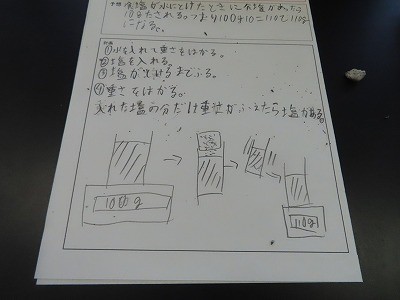 予想 食塩が水にとけたときに食塩があったら
10gたされる。つまり100g+10=110で110g
になる。
計画
①水を入れて重さをはかる。
②塩を入れる。
③塩がとけるまでふる。
④重さをはかる。
入れた塩の分だけ重さがふえたら塩がある。
100g
110g